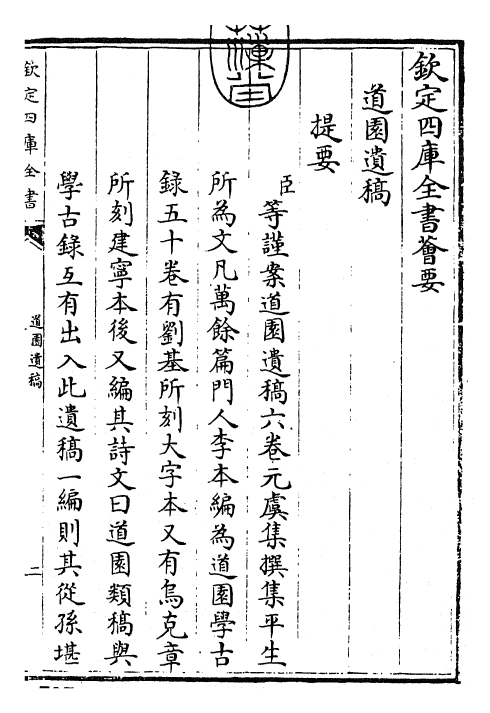 欽定四庫全書薈要
道園遺稿
提要
臣等謹案道園遺稿六卷元虞集撰集平生
所為文凡萬餘篇門人李本編為道園學古
錄五十卷有劉基所刻大字本又有烏克章
所刻建寧本後又編其詩文曰道園類稿與
學古錄互有出入此遺稿一編則其從孫堪
欽定四庫全書
道園遺稿
二